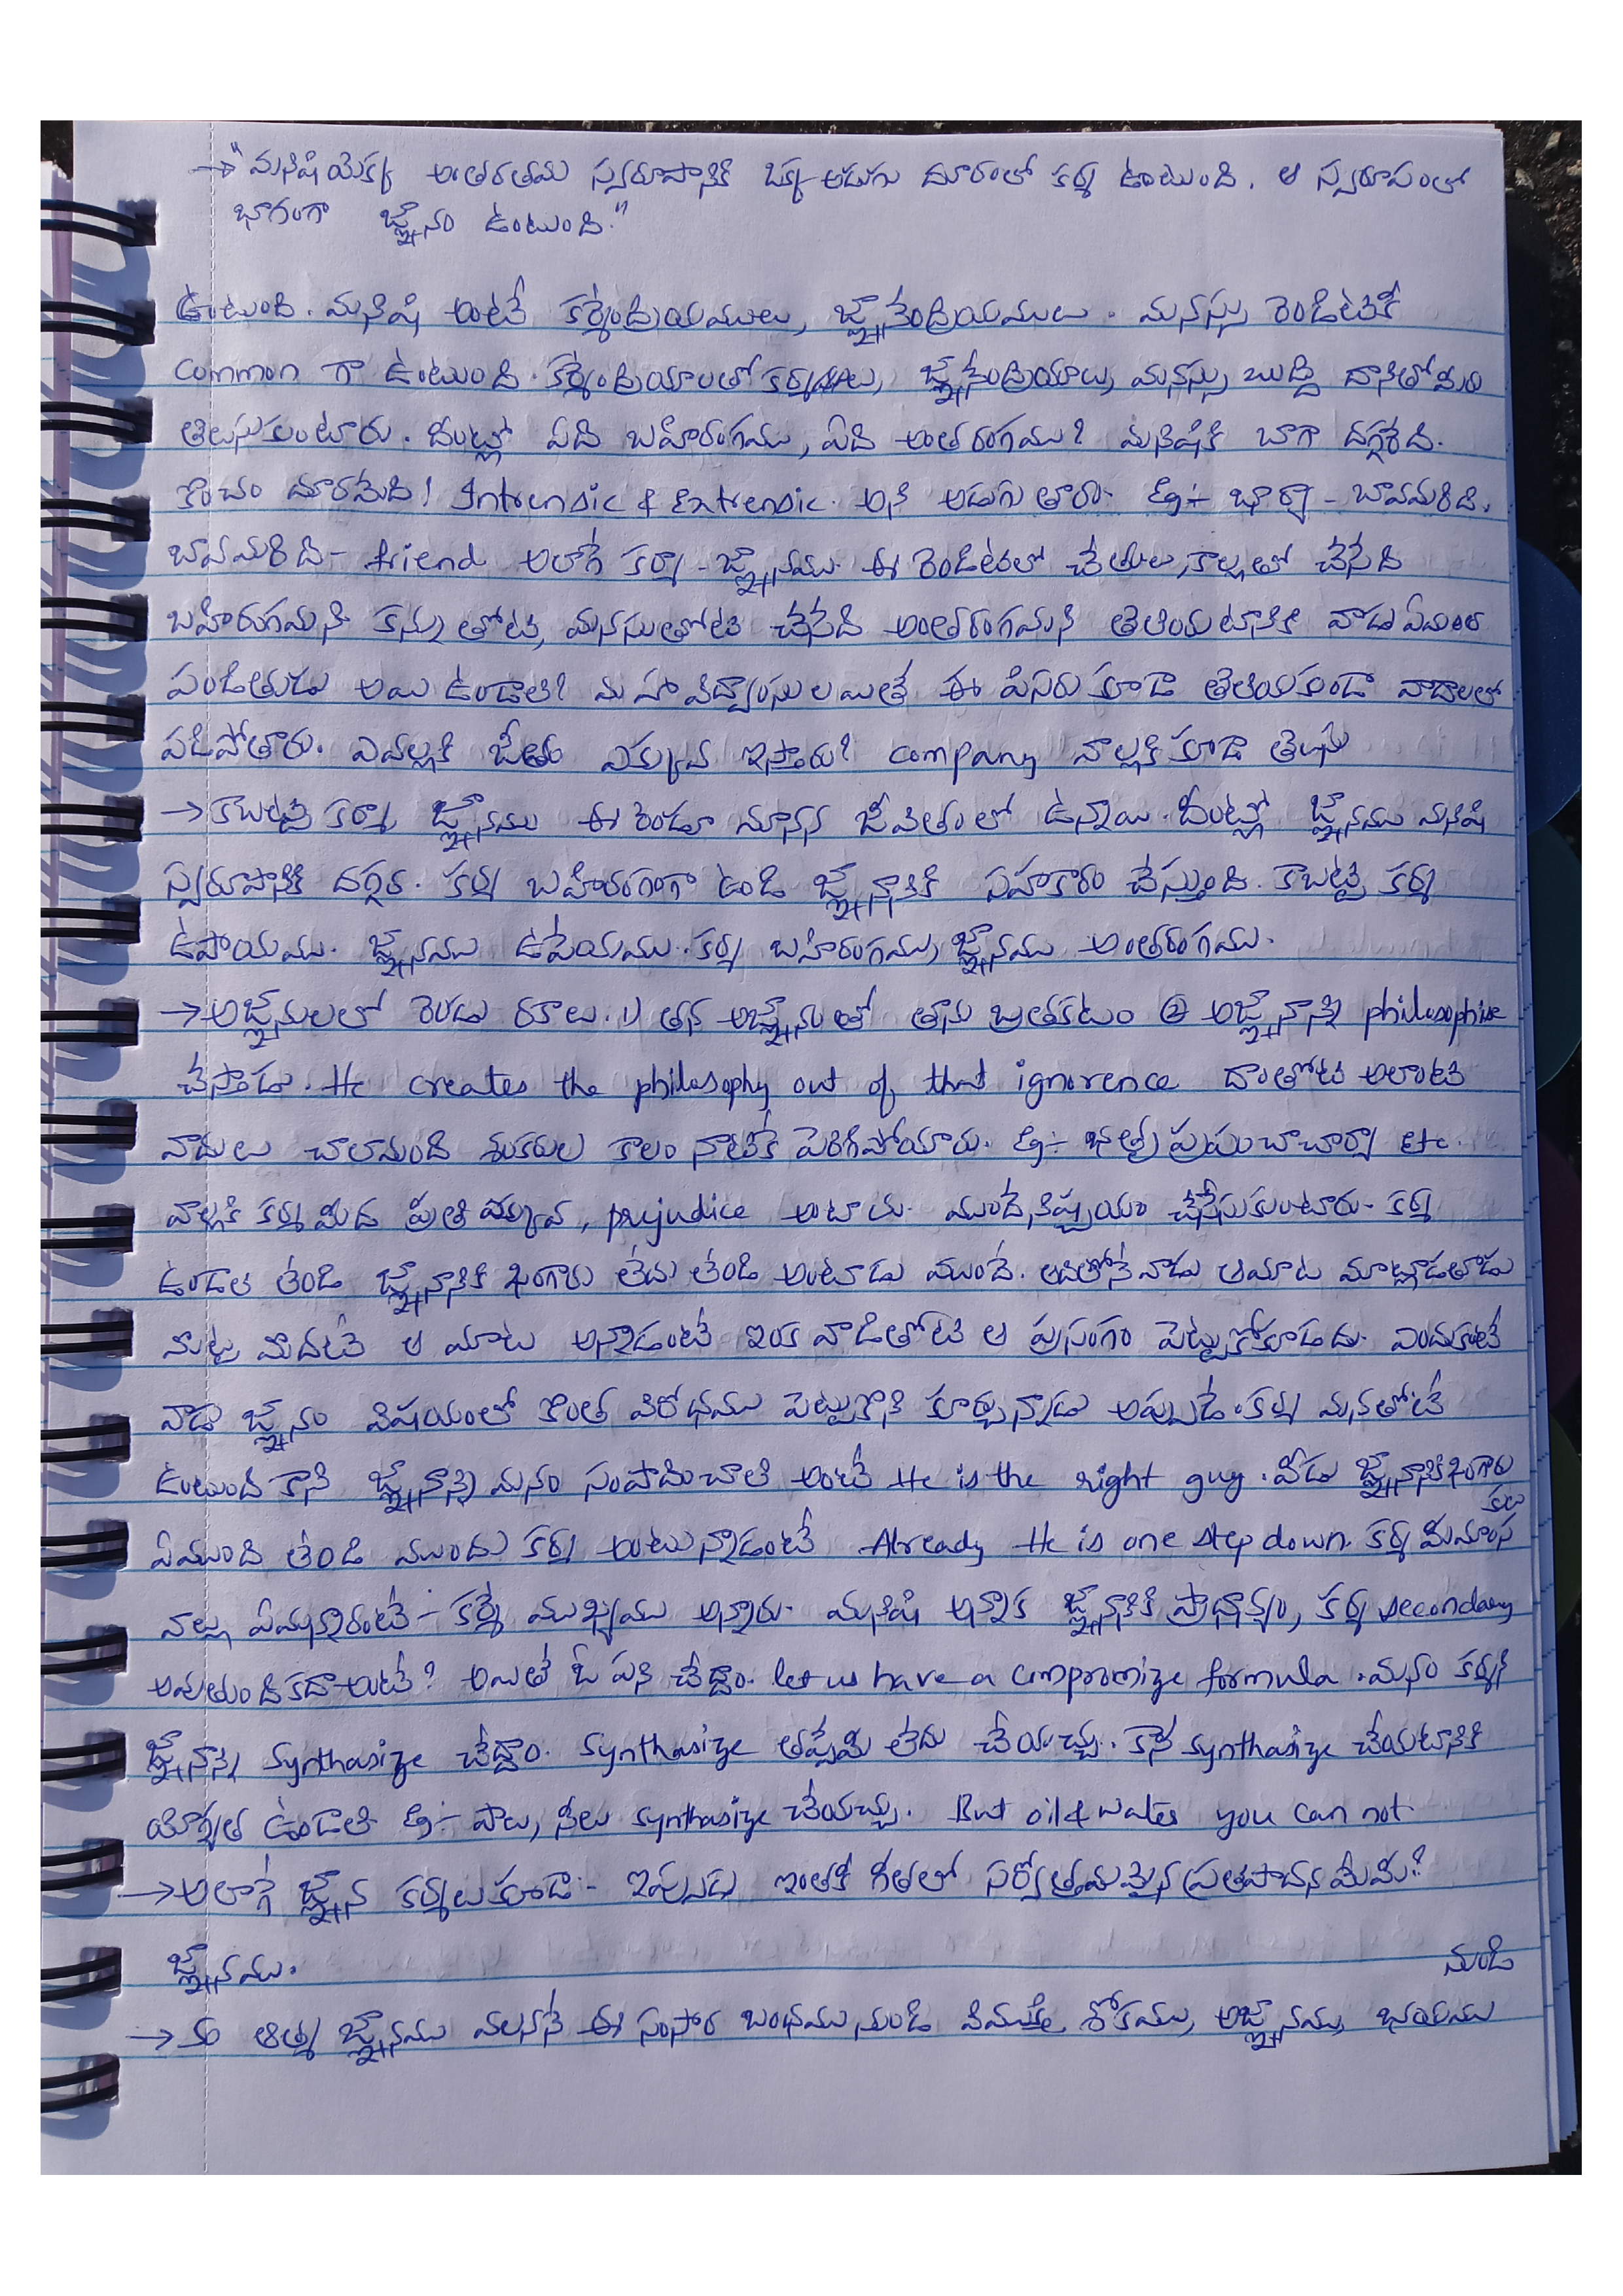 →"మనిషియొక్క అంతరతమ స్వరూపానికి ఒక్క అడుగు దూరంలో కర్మ ఉంటుంది. ఆ స్వరూపంలో
భాగంగా జ్ఞానం ఉంటుంది."
ఉంటుంది. మనిషి అంటే కర్మేంద్రియములు, జ్ఞానేంద్రియములు. మనస్సు రెండిటికీ
common గా ఉంటుంది. కర్మేంద్రియాలతో కర్మలు, జ్ఞానేంద్రియాలు, మనస్సు బుద్ధి దానితోమీరు
తెలుసుకుంటారు. దీంట్లో ఏది బహిరంగము, ఏది అంతరంగము? మనిషికి బాగా దగ్గరేది.
కొంచం దూరమేది! Intrensic & Extrensic. అని అడుగుతారు. Eg:- భార్యా - బావమరిది.
బావమరిది - friend అలాగే కర్మా - జ్ఞానము. ఈ రెండిటిలో చేతులు, కాళ్ళతో చేసేది
బహిరంగమని కన్ను తోటి, మనసుతోటి చేసేది అంతరంగమని తెలియటానికి వాడు ఏమంత
పండితుడు అయి ఉండాలి? మహావిద్వాంసులయితే ఈ పిసరు కూడా తెలియకుండా వాదాలలో
పడిపోతారు. ఎవళ్ళకి జీతం ఎక్కువ ఇస్తారు? company వాళ్ళకి కూడా తెలుసు
→కాబట్టి కర్మా, జ్ఞానము ఈ రెండూ మానవ జీవితంలో ఉన్నాయి. దీంట్లో జ్ఞానము మనిషి
స్వరూపానికి దగ్గర. కర్మ బహిరంగంగా ఉండి జ్ఞానానికి సహకారం చేస్తుంది. కాబట్టి కర్మ
ఉపాయము. జ్ఞానము ఉపేయము. కర్మ బహిరంగము, జ్ఞానము అంతరంగము.
→అజ్ఞానులలో రెండు రకాలు. 1) తన అజ్ఞానంతో తాను బ్రతకటం ② అజ్ఞానాన్ని philosophise
చేస్తాడు. He creates the philosophy out of that ignorence దాంతోటి అలాంటి
వాదులు చాలామంది శంకరుల కాలం నాటికే పెరిగిపోయారు. Eg:- భర్తృప్రపంచాచార్యా Etc.
వాళ్ళకి కర్మ మీద ప్రీతి ఎక్కువ, prejudice అంటారు. ముందే నిశ్చయం చేసేసుకుంటారు. కర్మ
ఉండాలి తండి జ్ఞానానికి బంగారు లేదు లేండి అంటాడు ముందే. అదితోనే వాడు ఆమాట మాట్లాడతాడు
మొట్ట మొదటే ఆ మాట అన్నాడంటే ఇంక వాడితోటి ఆ ప్రసంగం పెట్టుకోకూడదు. ఎందుకంటే
వాడు జ్ఞానం విషయంలో కొంత విరోధము పెట్టుకొని కూర్చున్నాడు అప్పుడే. కర్మ మనతోటి
ఉంటుంది కాని జ్ఞానాన్ని మనం సంపాదించాలి అంటే He is the right guy. వీడు జ్ఞానానికి
ఏముంది లేండి ముందు కర్మ అంటున్నాడంటే Already He is one step down. కర్మ మీమాంస
వాళ్లు ఏమన్నారంటే - కర్మే ముఖ్యము అన్నారు. మనిషి అన్నాక జ్ఞానానికి ప్రాధాన్యం, కర్మ secondary
అవుతుంది కదా అంటే? అయితే ఓ పని చేద్దాం. let us have a compromize formula. మనం కర్మని
జ్ఞానాన్ని Synthasize చేద్దాం. Synthasize తప్పేమీ లేదు చేయచ్చు. కానీ synthasize చేయటానికి
యోగ్యత ఉండాలి Eg:- పాలు, నీలు synthasize చేయచ్చు. But oil & water you can not.
→అలాగే జ్ఞాన కర్మలు కూడా - ఇప్పుడు ఇంతకీ గీతలో సర్వోత్తమమైన ప్రతిపాదన మేమి?
జ్ఞానము.
నుండి
→ ఆత్మ జ్ఞానము వలననే ఈ సంసార బంధము నుండి విముక్తి, శోకము, అజ్ఞానము, భయము